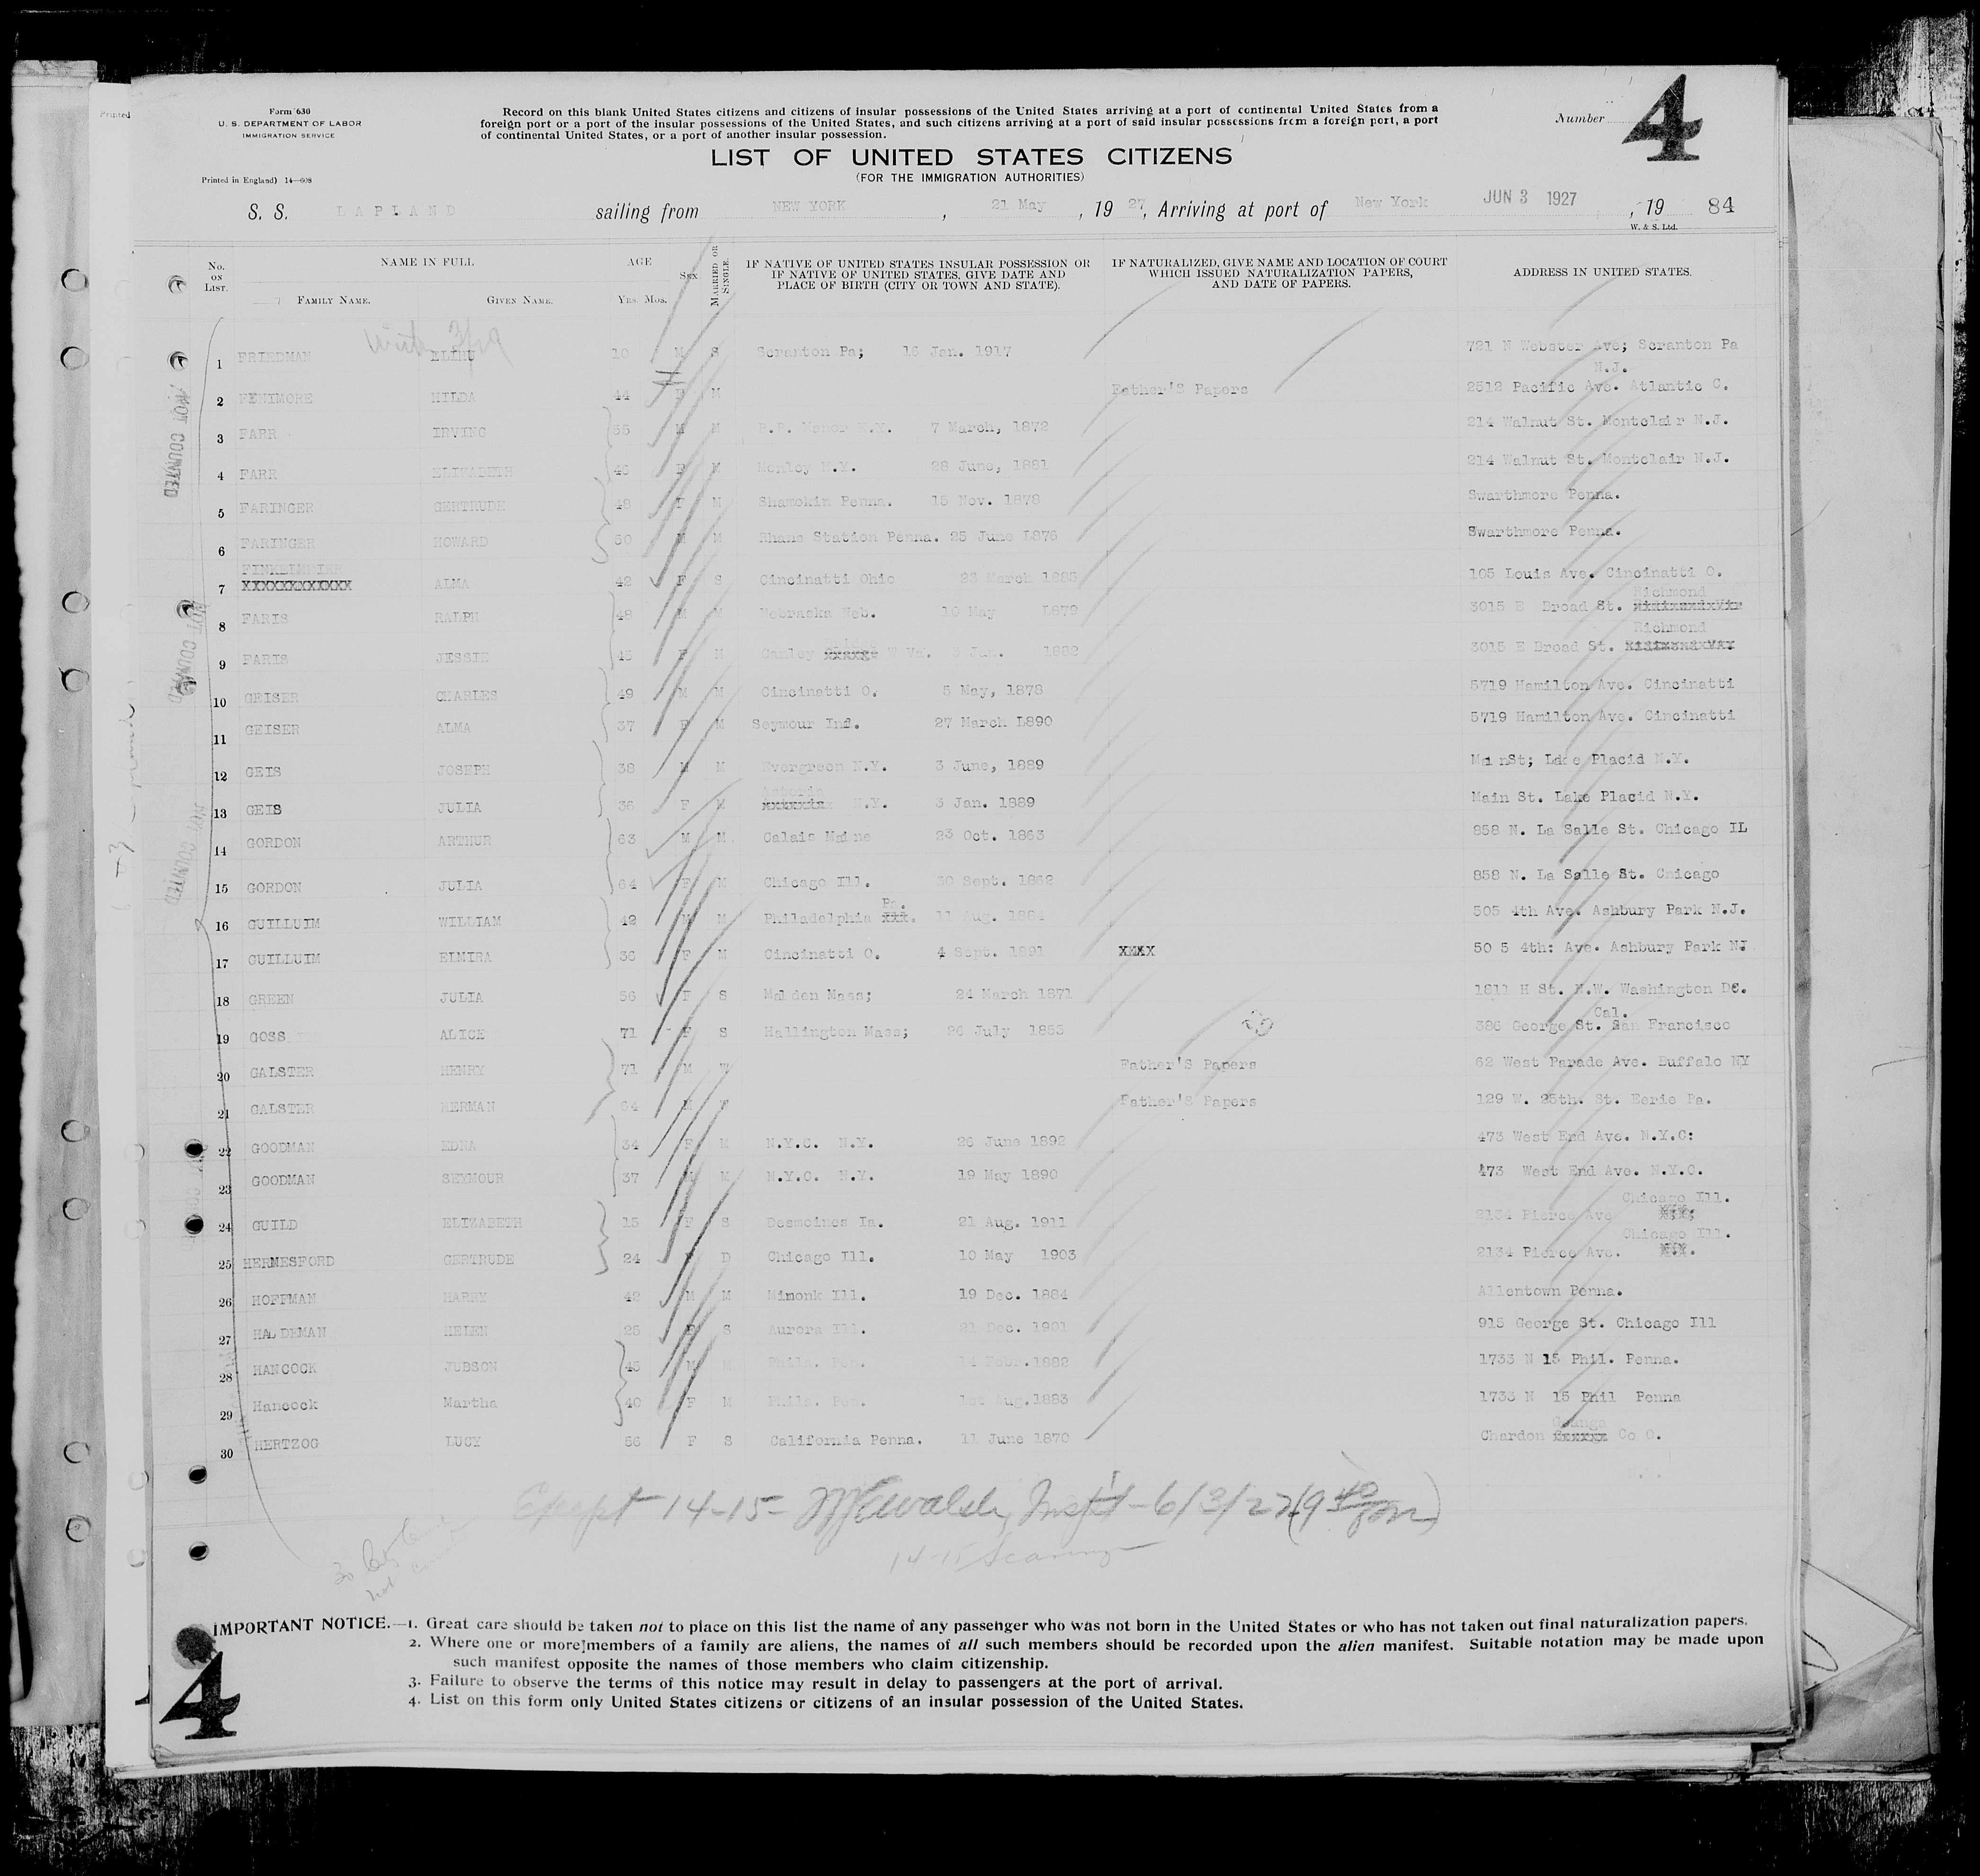 Form 630
U. S. DEPARTMENT OF LABOR
IMMIGRATION SERVICE
Printed in England) 14—608
Record on this blank United States citizens and citizens of insular possessions of the United States arriving at a port of continental United States from a
foreign port or a port of the insular possessions of the United States, and such citizens arriving at a port of said insular possessions from a foreign port, a port
of continental United States, or a port of another insular possession.
Number 4
LIST OF UNITED STATES CITIZENS
(FOR THE IMMIGRATION AUTHORITIES)
S. S. LAPLAND sailing from NEW YORK, 21 May, 19 27, Arriving at port of New York JUN 3 1927, 19 84
W. & S. Ltd.
No. ON LIST. NAME IN FULL FAMILY NAME. GIVEN NAME. AGE YRS. MOS. SEX MARRIED OR SINGLE. IF NATIVE OF UNITED STATES INSULAR POSSESSION OR IF NATIVE OF UNITED STATES, GIVE DATE AND PLACE OF BIRTH (CITY OR TOWN AND STATE). IF NATURALIZED, GIVE NAME AND LOCATION OF COURT WHICH ISSUED NATURALIZATION PAPERS, AND DATE OF PAPERS. ADDRESS IN UNITED STATES.
1 FRIEDMAN ELIHU 10 M S Scranton Pa; 16 Jan. 1917 721 N Webster Ave; Scranton Pa
2 FENIMORE HILDA 44 F M Father'S Papers 2512 Pacific Ave. Atlantic C. N.J.
3 FARR IRVING 55 M M Manor N.Y. 7 March, 1872 214 Walnut St. Montclair N.J.
4 FARR ELIZABETH 46 F M Henley N.Y. 28 June, 1881 214 Walnut St. Montclair N.J.
5 FARINGER GERTRUDE 48 F M Shamokin Penna. 15 Nov. 1878 Swarthmore Penna.
6 FARINGER HOWARD 50 M M Rhans Station Penna. 25 June 1876 Swarthmore Penna.
7 XXXXXXXXXXXX ALMA 42 F S Cincinatti Ohio 23 March 1885 105 Louis Ave. Cincinatti O.
8 FARIS RALPH 48 M M Nebraska Neb. 10 May 1879 3015 E Broad St. Richmond
9 FARIS JESSIE 45 F M Canley W Va. 3 Jan. 1882 3015 E Broad St. Richmond
10 GEISER CHARLES 49 M M Cincinatti O. 5 May, 1878 5719 Hamilton Ave. Cincinatti
11 GEISER ALMA 37 F M Seymour Ind. 27 March 1890 5719 Hamilton Ave. Cincinatti
12 GEIS JOSEPH 38 M M Evergreen N.Y. 3 June, 1889 Main St; Lake Placid N.Y.
13 GEIS JULIA 36 F M Astoria N.Y. 3 Jan. 1889 Main St. Lake Placid N.Y.
14 GORDON ARTHUR 63 M M Calais Maine 23 Oct. 1863 858 N. La Salle St. Chicago IL
15 GORDON JULIA 64 F M Chicago Ill. 30 Sept. 1862 858 N. La Salle St. Chicago
16 GUILLUIM WILLIAM 42 M M Philadelphia Pa. XXX. 11 Aug. 1884 505 4th Ave. Ashbury Park N.J.
17 GUILLUIM ELMIRA 36 F M Cincinatti O. 4 Sept. 1891 XXXX 50 5 4th: Ave. Ashbury Park NJ
18 GREEN JULIA 56 F S Malden Mass; 24 March 1871 1811 H St. N.W. Washington DC.
19 GOSS ALICE 71 F S Hallington Mass; 26 July 1855 386 George St. San Francisco Cal.
20 GALSTER HENRY 71 M W Father'S Papers 62 West Parade Ave. Buffalo NY
21 GALSTER HERMAN 64 M Father'S Papers 129 W. 25th. St. Eerie Pa.
22 GOODMAN EDNA 34 F M N.Y.C. N.Y. 26 June 1892 473 West End Ave. N.Y.C:
23 GOODMAN SEYMOUR 37 M M N.Y.C. N.Y. 19 May 1890 473 West End Ave. N.Y.C.
24 GUILD ELIZABETH 15 F S Desmoines Ia. 21 Aug. 1911 2134 Pierce Ave Chicago Ill.
25 HERMESFORD GERTRUDE 24 F D Chicago Ill. 10 May 1903 2134 Pierce Ave. Chicago Ill.
26 HOFFMAN HARRY 42 M M Minonk Ill. 19 Dec. 1884 Allentown Penna.
27 HALDEMAN HELEN 25 F S Aurora Ill. 21 Dec. 1901 915 George St. Chicago Ill
28 HANCOCK JUDSON 45 M M Phila. Pen. 14 Febr. 1882 1733 N 15 Phil. Penna.
29 Hancock Martha 40 F M Phila. Pen. 1st Aug. 1883 1733 N 15 Phil Penna
30 HERTZOG LUCY 56 F S California Penna. 11 June 1870 Chardon Geauga Co O.
NOT COUNTED
NOT COUNTED
NOT COUNTED
Except 14-15- Insp't - 6/3/27 (9
14-15
IMPORTANT NOTICE.—1. Great care should be taken not to place on this list the name of any passenger who was not born in the United States or who has not taken out final naturalization papers.
2. Where one or more members of a family are aliens, the names of all such members should be recorded upon the alien manifest. Suitable notation may be made upon
such manifest opposite the names of those members who claim citizenship.
3. Failure to observe the terms of this notice may result in delay to passengers at the port of arrival.
4. List on this form only United States citizens or citizens of an insular possession of the United States.
4